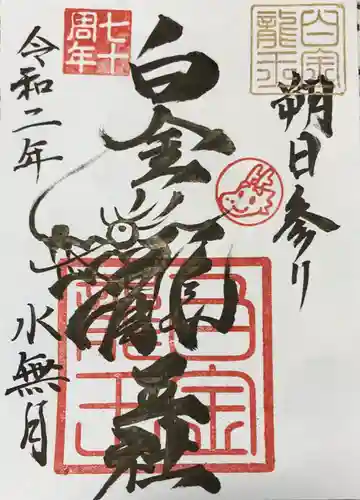 白金
龍王
朔日参り
七十
周年
白金龍王社
白金
龍王
令和二年
水無月